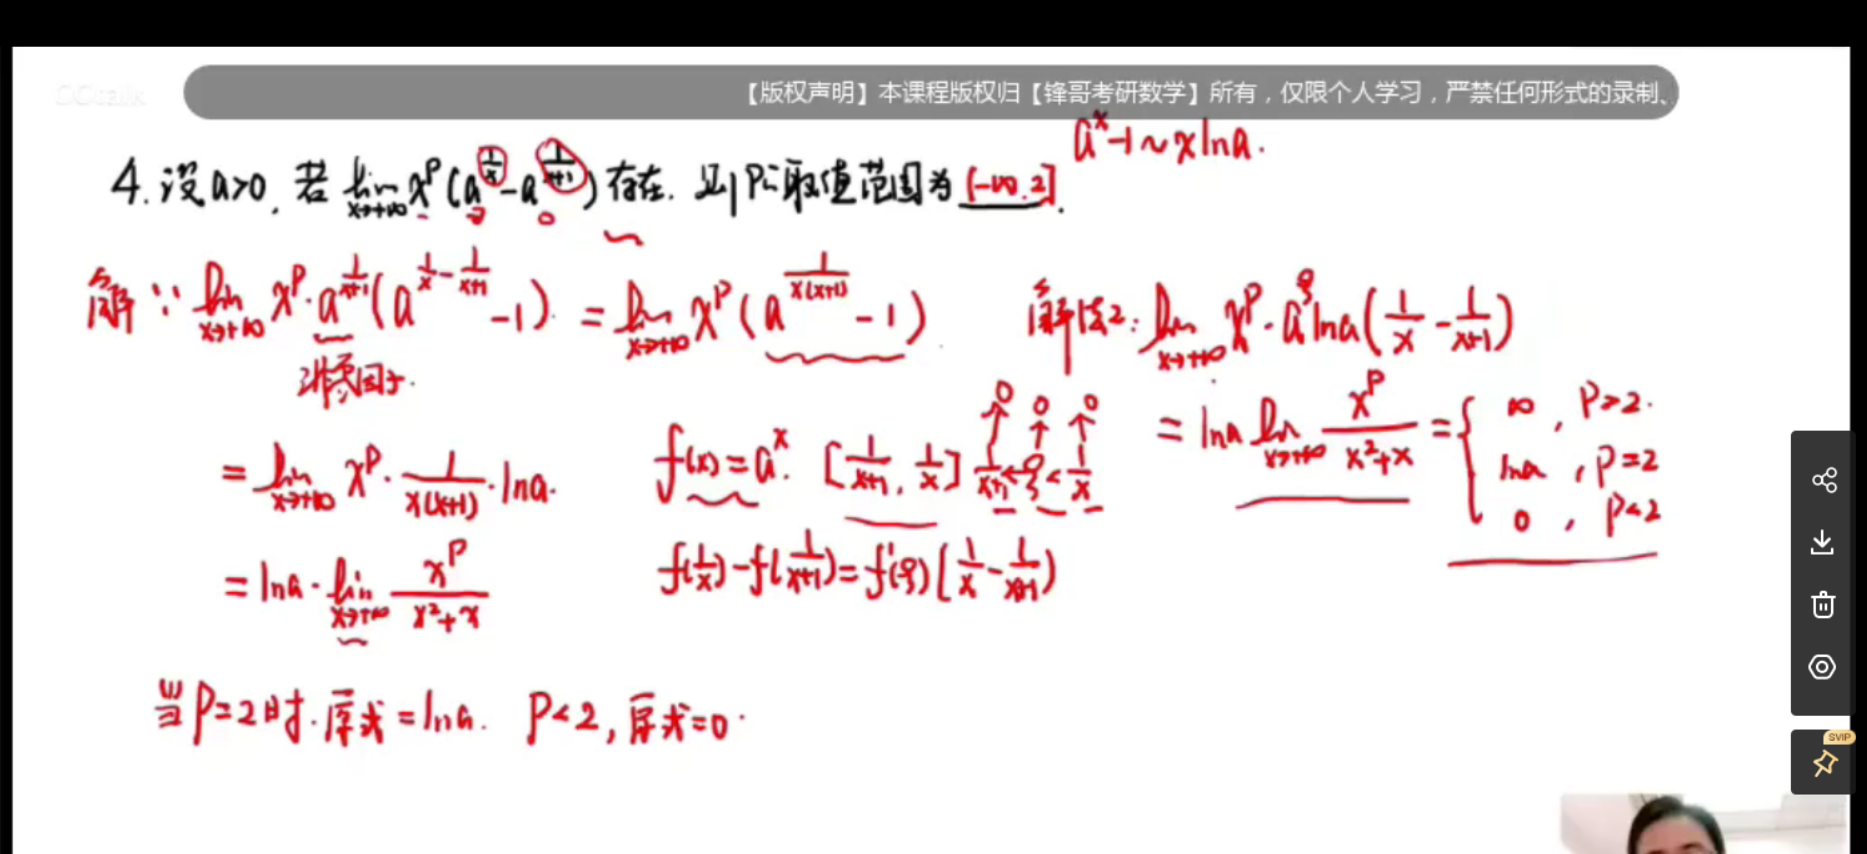 CCtalk
【版权声明】本课程版权归【锋哥考研数学】所有，仅限个人学习，严禁任何形式的录制、
a^x-1~xlna.
4.设a>0,若lim x→+∞ x^p(a^(1/x)-a^(1/(x+1)))存在.则p的取值范围为(-∞.2].
0 0
解∵lim x→+∞ x^p·a^(1/(x+1))(a^(1/x-1/(x+1))-1)=lim x→+∞ x^p(a^(1/(x(x+1)))-1)
非零因子.
=lim x→+∞ x^p·1/(x(x+1))·lna.
=lna·lim x→+∞ x^p/(x²+x)
f(x)=a^x. [1/(x+1),1/x] 1/(x+1)<ξ<1/x
0 0 0
f(1/x)-f(1/(x+1))=f'(ξ)(1/x-1/(x+1))
解法2:lim x→+∞ x^p·a^ξlna(1/x-1/(x+1))
=lna lim x→+∞ x^p/(x²+x)={∞,p>2.
lna,p=2
0,p<2
当p=2时.原式=lna. p<2,原式=0.
SVIP